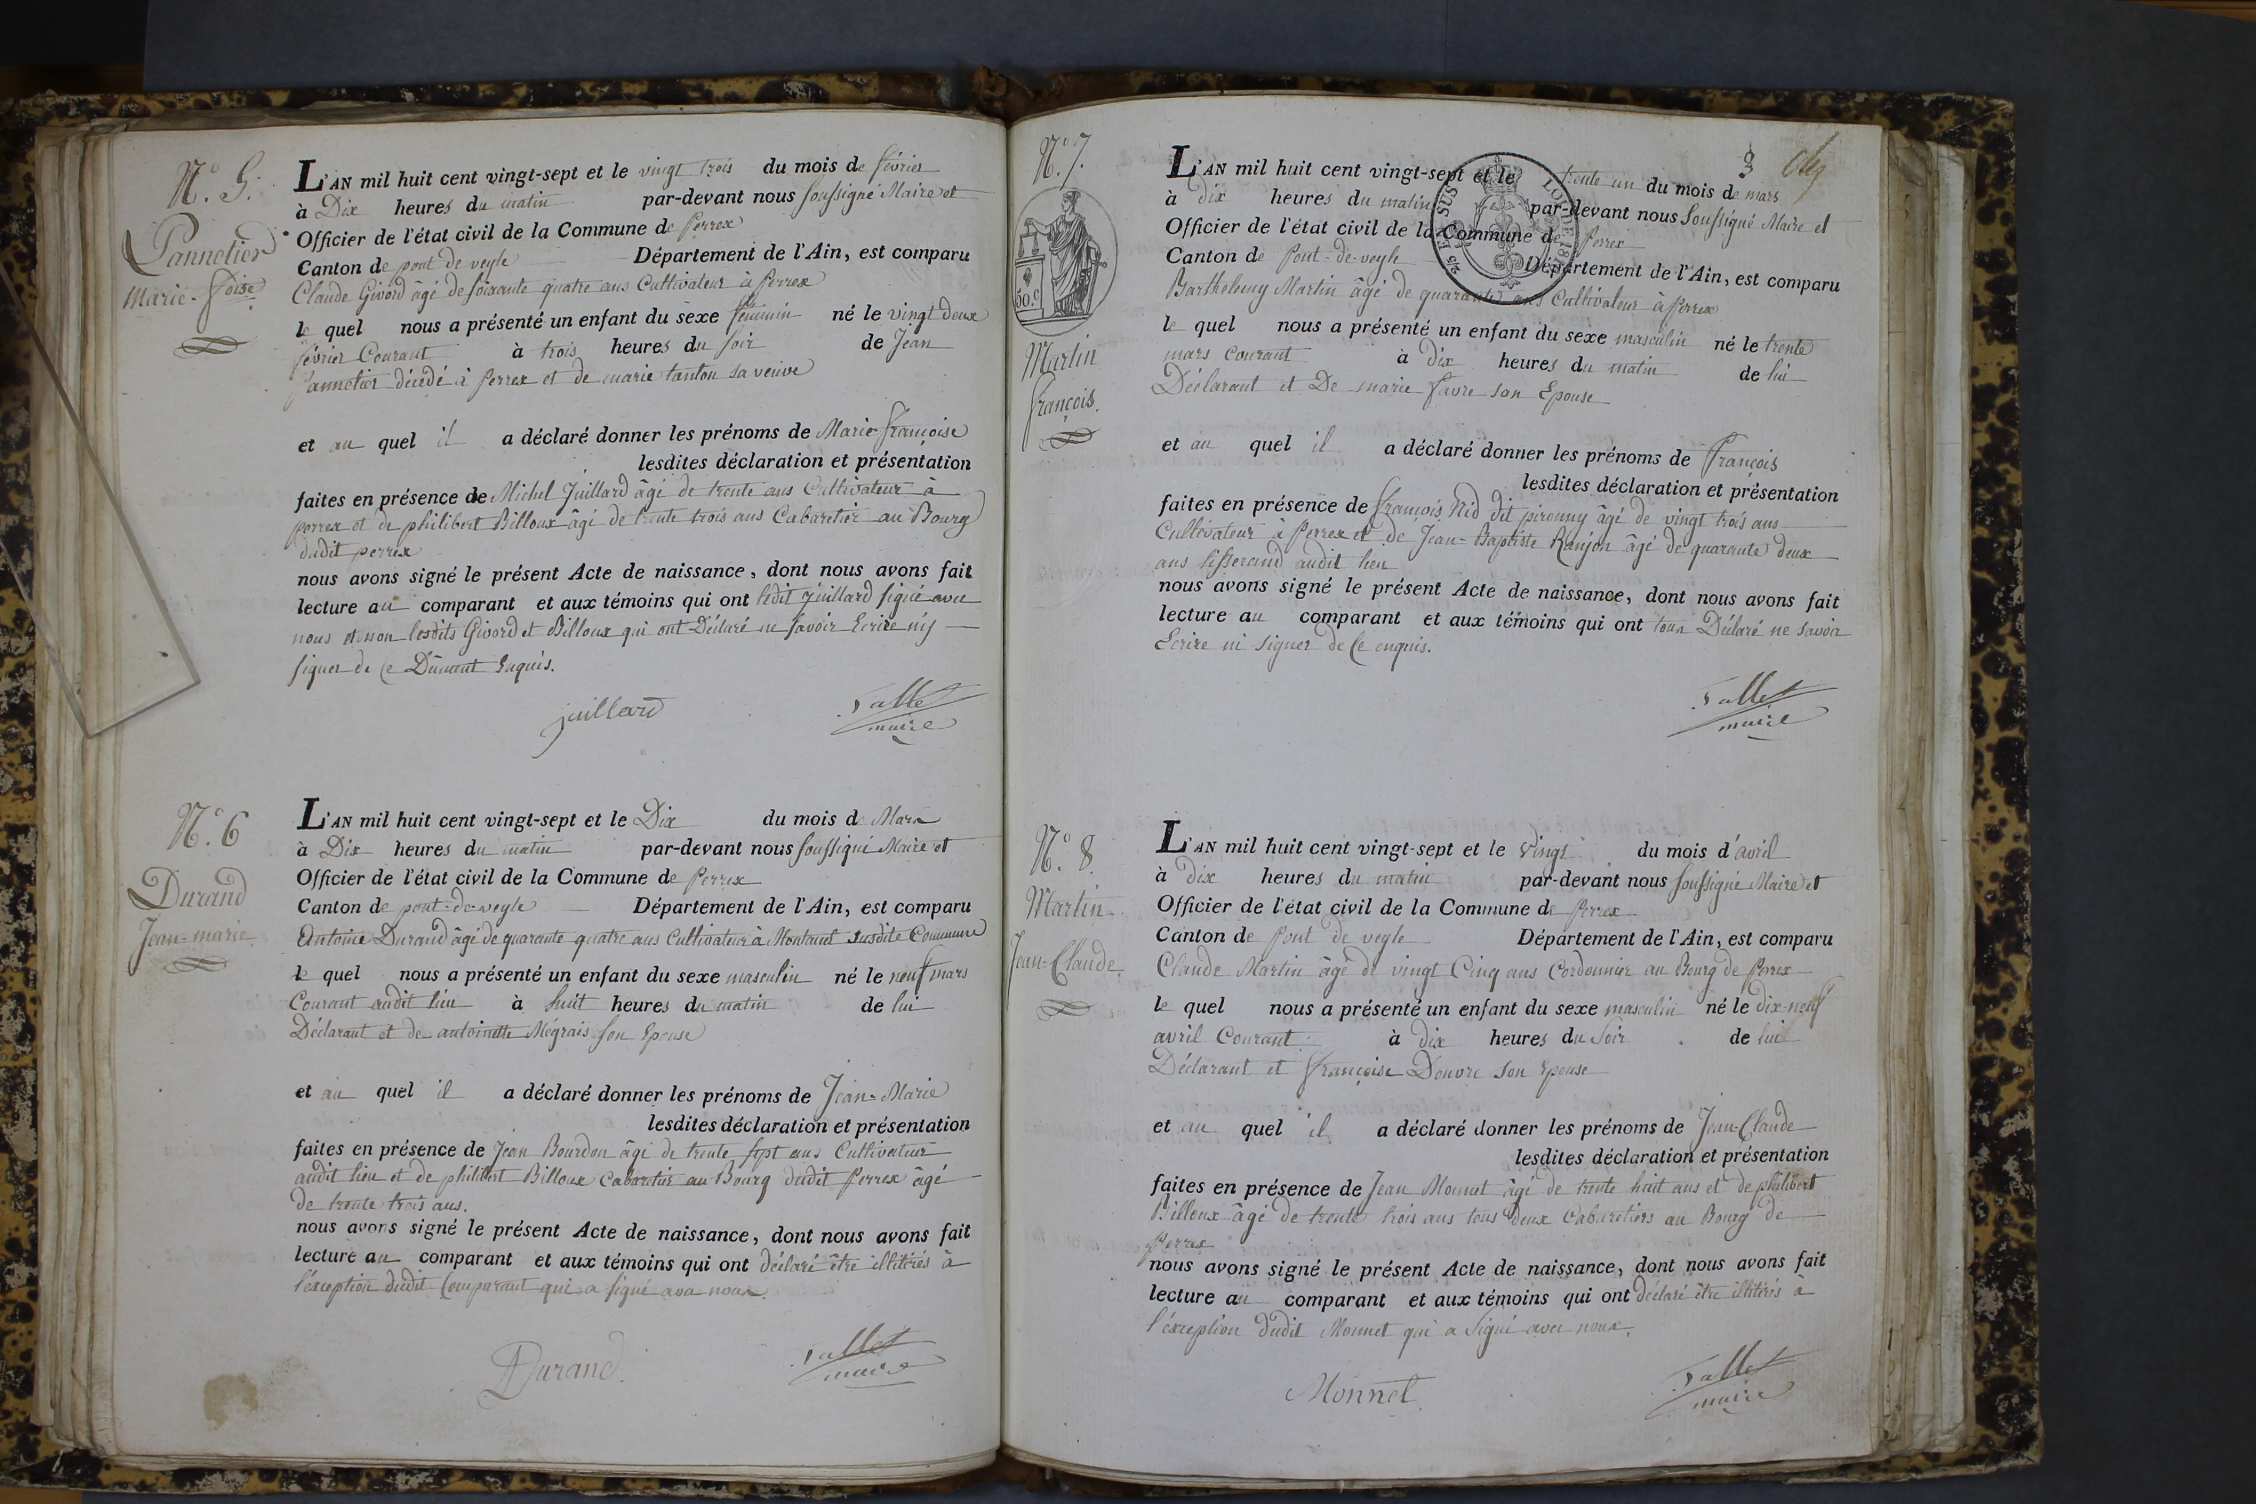 N.o 5.
Pannetier
Marie-foise
L'AN mil huit cent vingt-sept et le vingt trois du mois de février
à Dix heures du matin par-devant nous soussigné Maire et
Officier de l'état civil de la Commune de Perrex
Canton de pont de veyle Département de l'Ain, est comparu
Claude Givord âgé de soixante quatre ans Cultivateur à Perrex
le quel nous a présenté un enfant du sexe féminin né le vingt deux
février Courant à trois heures du soir de Jean
Pannetier décédé à perrex et de marie tanton sa veuve
et au quel il a déclaré donner les prénoms de Marie françoise
lesdites déclaration et présentation
faites en présence de Michel Juillard âgé de trente ans Cultivateur à
perrex et de philibert Billoux âgé de trente trois ans Cabaretier au Bourg
dudit perrex
nous avons signé le présent Acte de naissance, dont nous avons fait
lecture au comparant et aux témoins qui ont ledit Juillard signé avec
nous et non lesdits Givord et Billoux qui ont Déclaré ne savoir Ecrire niy
signer de ce Dûment Enquis.
juillard
Vallet
maire
N.o 6
Durand
Jean-marie
L'AN mil huit cent vingt-sept et le Dix du mois de Mars
à Dix heures du matin par-devant nous soussigné Maire et
Officier de l'état civil de la Commune de Perrex
Canton de pont-de-veyle Département de l'Ain, est comparu
Antoine Durand âgé de quarante quatre ans Cultivateur à Montanet susdite Commune
le quel nous a présenté un enfant du sexe masculin né le neuf mars
Courant audit lieu à huit heures du matin de lui
Déclarant et de antoinette Mégrais son Epouse
et au quel il a déclaré donner les prénoms de Jean-Marie
lesdites déclaration et présentation
faites en présence de Jean Bourdon âgé de trente sept ans Cultivateur
audit lieu et de philibert Billoux Cabaretier au Bourg dudit Perrex âgé
de trente trois ans.
nous avons signé le présent Acte de naissance, dont nous avons fait
lecture au comparant et aux témoins qui ont déclaré être illitérés à
l'éxception dudit Comparant qui a signé avec nous.
Durand
Vallet
maire
3
N.o 7.
60.c
Martin
françois.
L'AN mil huit cent vingt-sept et le trente un du mois de mars
à dix heures du matin par-devant nous soussigné Maire et
Officier de l'état civil de la Commune de Perrex
Canton de Pont-de-veyle Département de l'Ain, est comparu
Barthelemy Martin âgé de quarante ans Cultivateur à Perrex
le quel nous a présenté un enfant du sexe masculin né le trente
mars courant à dix heures du matin de lui
Déclarant et De marie favre son Epouse
et au quel il a déclaré donner les prénoms de François
lesdites déclaration et présentation
faites en présence de françois Nid dit pirouny âgé de vingt trois ans
Cultivateur à Perrex et de Jean-Baptiste Ranjon âgé de quarante deux
ans tisserand audit lieu
nous avons signé le présent Acte de naissance, dont nous avons fait
lecture au comparant et aux témoins qui ont tous Déclaré ne savoir
Ecrire ni signer de Ce enquis.
Vallet
maire
N.o 8.
Martin
Jean-Claude
L'AN mil huit cent vingt-sept et le vingt du mois d'avril
à dix heures du matin par-devant nous soussigné Maire et
Officier de l'état civil de la Commune de Perrex
Canton de Pont de veyle Département de l'Ain, est comparu
Claude Martin âgé de vingt Cinq ans Cordonnier au Bourg de Perrex
le quel nous a présenté un enfant du sexe masculin né le dix-neuf
avril Courant à dix heures du soir de lui
Déclarant et françoise Douvre son Epouse
et au quel il a déclaré donner les prénoms de Jean-Claude
lesdites déclaration et présentation
faites en présence de Jean Monnet âgé de trente huit ans et de philibert
Billoux âgé de trente trois ans tous deux Cabaretiers au Bourg de
Perrex
nous avons signé le présent Acte de naissance, dont nous avons fait
lecture au comparant et aux témoins qui ont déclaré être illitérés à
l'éxception dudit Monnet qui a signé avec nous.
Monnet
Vallet
maire